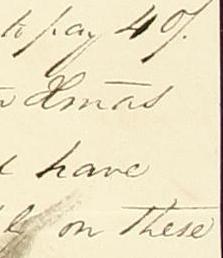 to pay 40/.
Xmas
have
on these